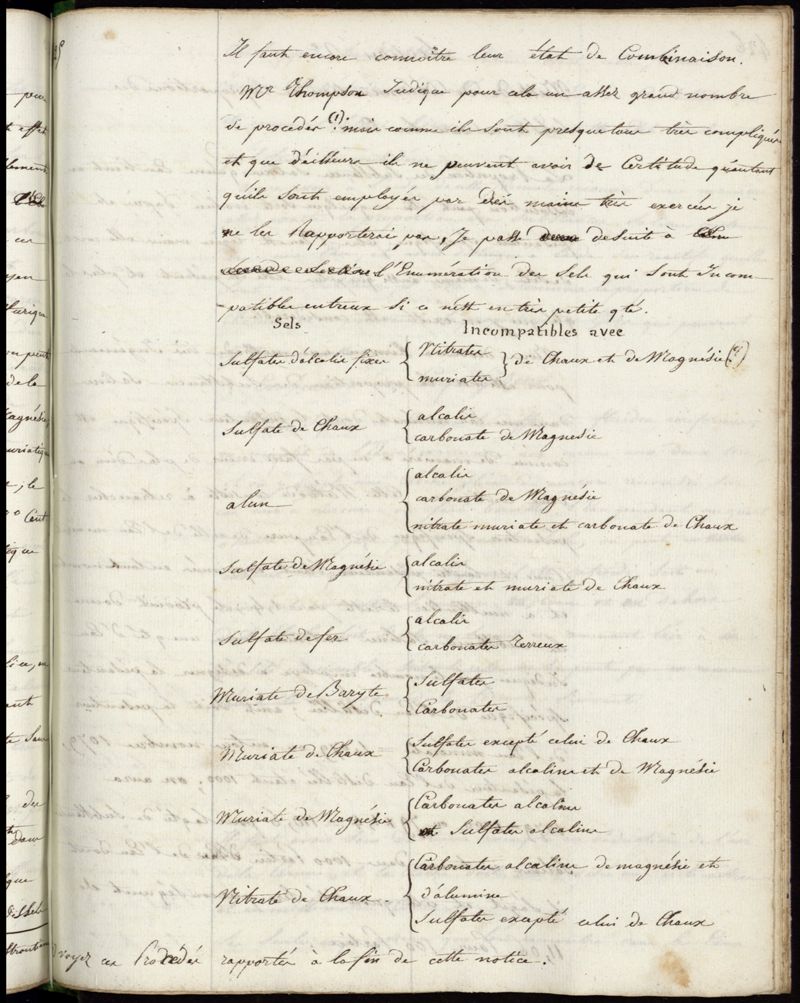 Il faut encore connoître leur état de Combinaison.
Mr Thompson Indique pour cela un assez grand nombre
de procédés (1) mais comme ils sont presque tous très compliqués
et que d'éilleurs ils ne peuvent avoir de Certitude qu'autant
qu'ils sont employés par des mains très exercées je
ne les Rapporterai pas, Je passe de suite à
l'Enumération des Sels qui sont Incom-
-patibles entreux si ce n'est en très petite qté.
Sels Incompatibles avec
Sulfates d'alcalis fixes { Nitrates
muriates } de Chaux et de Magnésie (2)
Sulfate de Chaux { alcalis
carbonate de Magnésie
alun { alcalis
carbonate de Magnésie
nitrate muriate et carbonate de Chaux
Sulfate de Magnésie { alcalis
nitrate et muriate de Chaux
Sulfate de fer { alcalis
carbonates Terreux
Muriate de Baryte { Sulfates
Carbonates
Muriate de Chaux { Sulfates excepté celui de Chaux
Carbonates alcalins et de Magnésie
Muriate de Magnésie { Carbonates alcalins
Sulfates alcalins
Nitrate de Chaux. { Carbonates alcalins de magnésie et
d'alumine
Sulfates excepté celui de Chaux
voyez ces Procédés rapportés à la fin de cette notice.